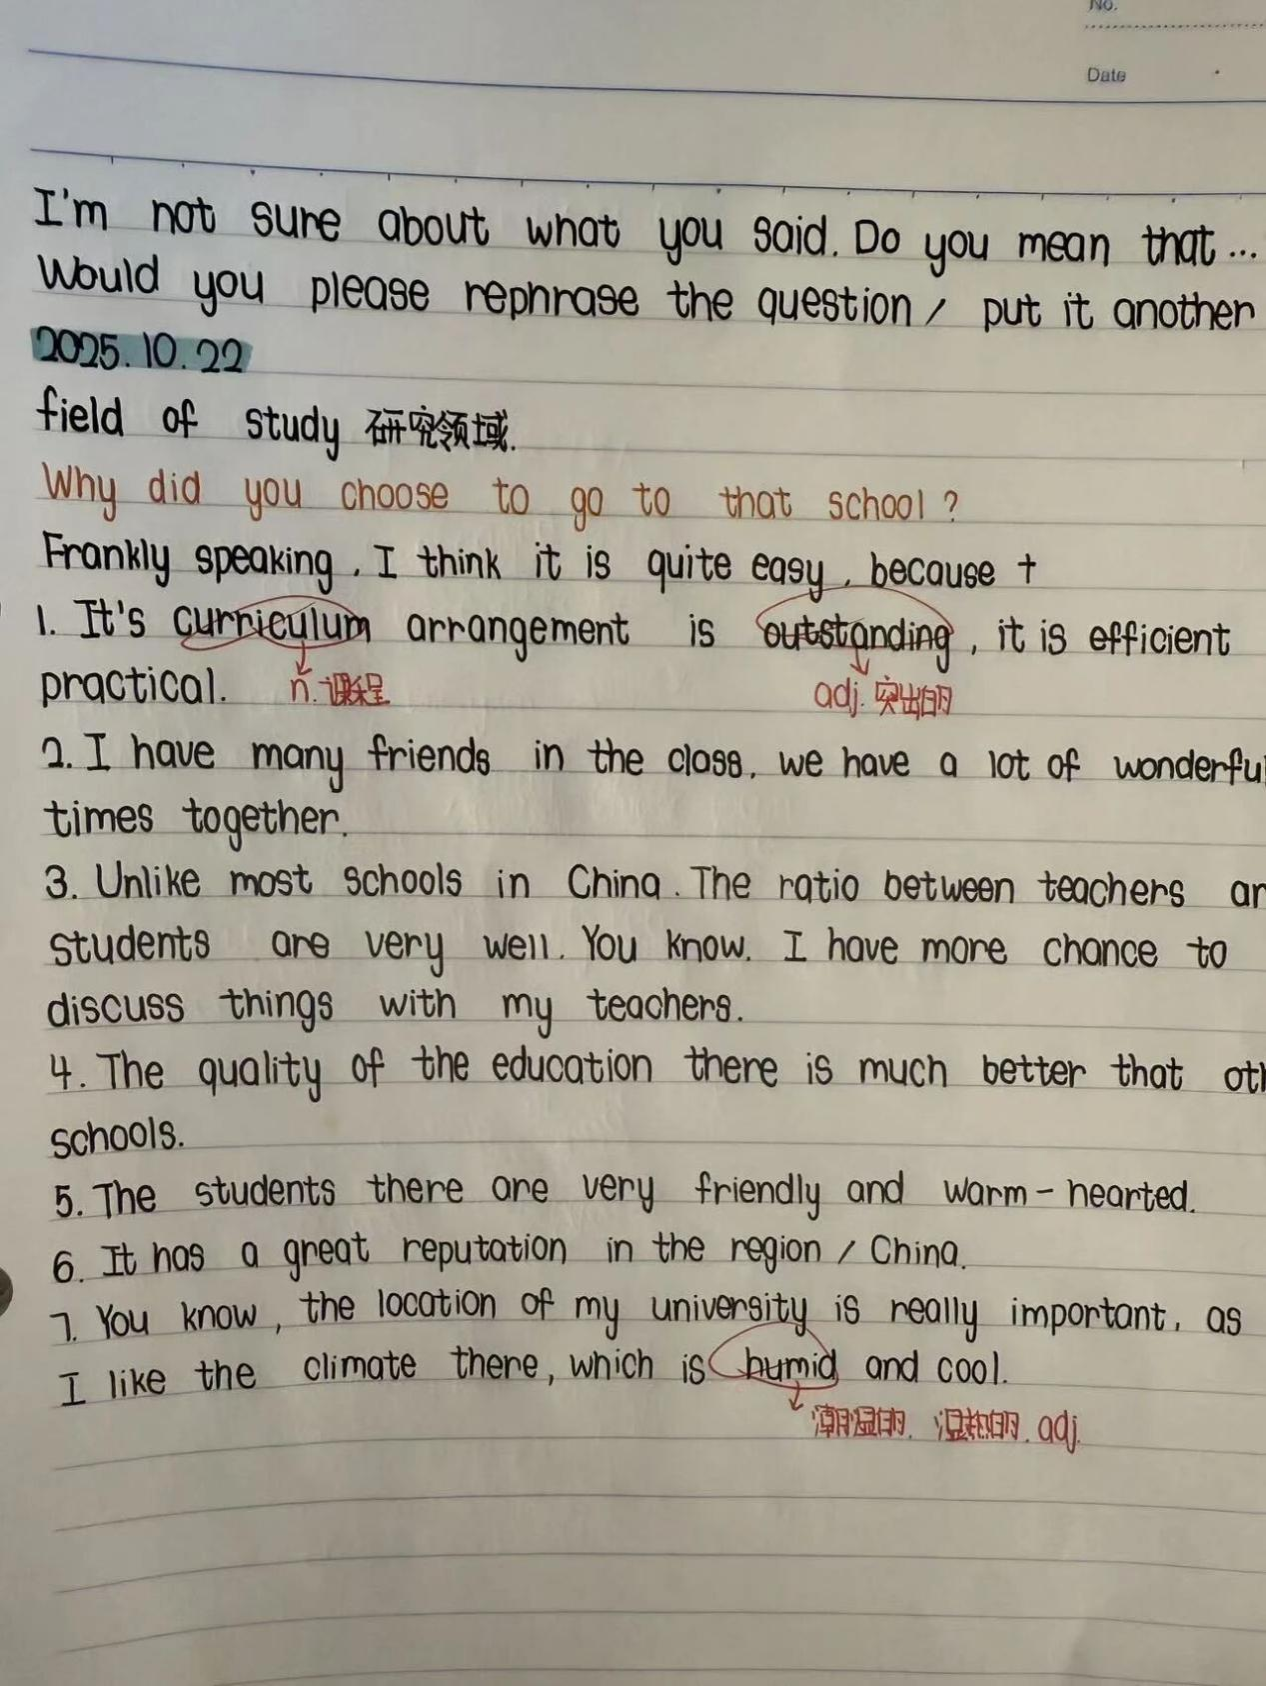 No.
Date
I'm not sure about what you said. Do you mean that ...
Would you please rephrase the question / put it another
2025.10.22
field of study 研究领域.
Why did you choose to go to that school?
Frankly speaking, I think it is quite easy, because +
1. It's curriculum arrangement is outstanding, it is efficient
practical. n. 课程 adj. 突出的
2. I have many friends in the class, we have a lot of wonderful
times together.
3. Unlike most schools in China. The ratio between teachers
students are very well. You know. I have more chance to
discuss things with my teachers.
4. The quality of the education there is much better that
schools.
5. The students there are very friendly and warm-hearted.
6. It has a great reputation in the region / China.
7. You know, the location of my university is really important, as
I like the climate there, which is humid and cool.
潮湿的. 湿热的. adj.